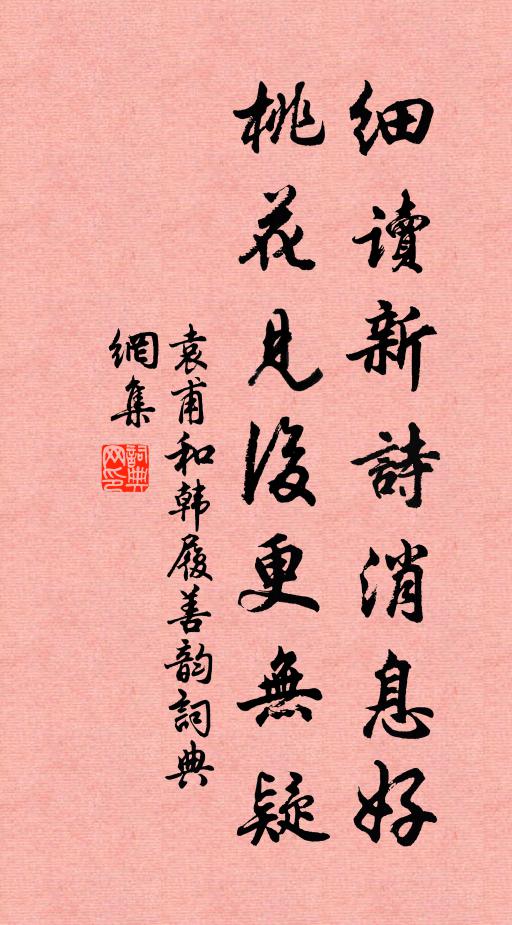 細讀新詩消息好
桃花見後更無疑
袁甫和韩履善韵詞典
網集
詞典網印